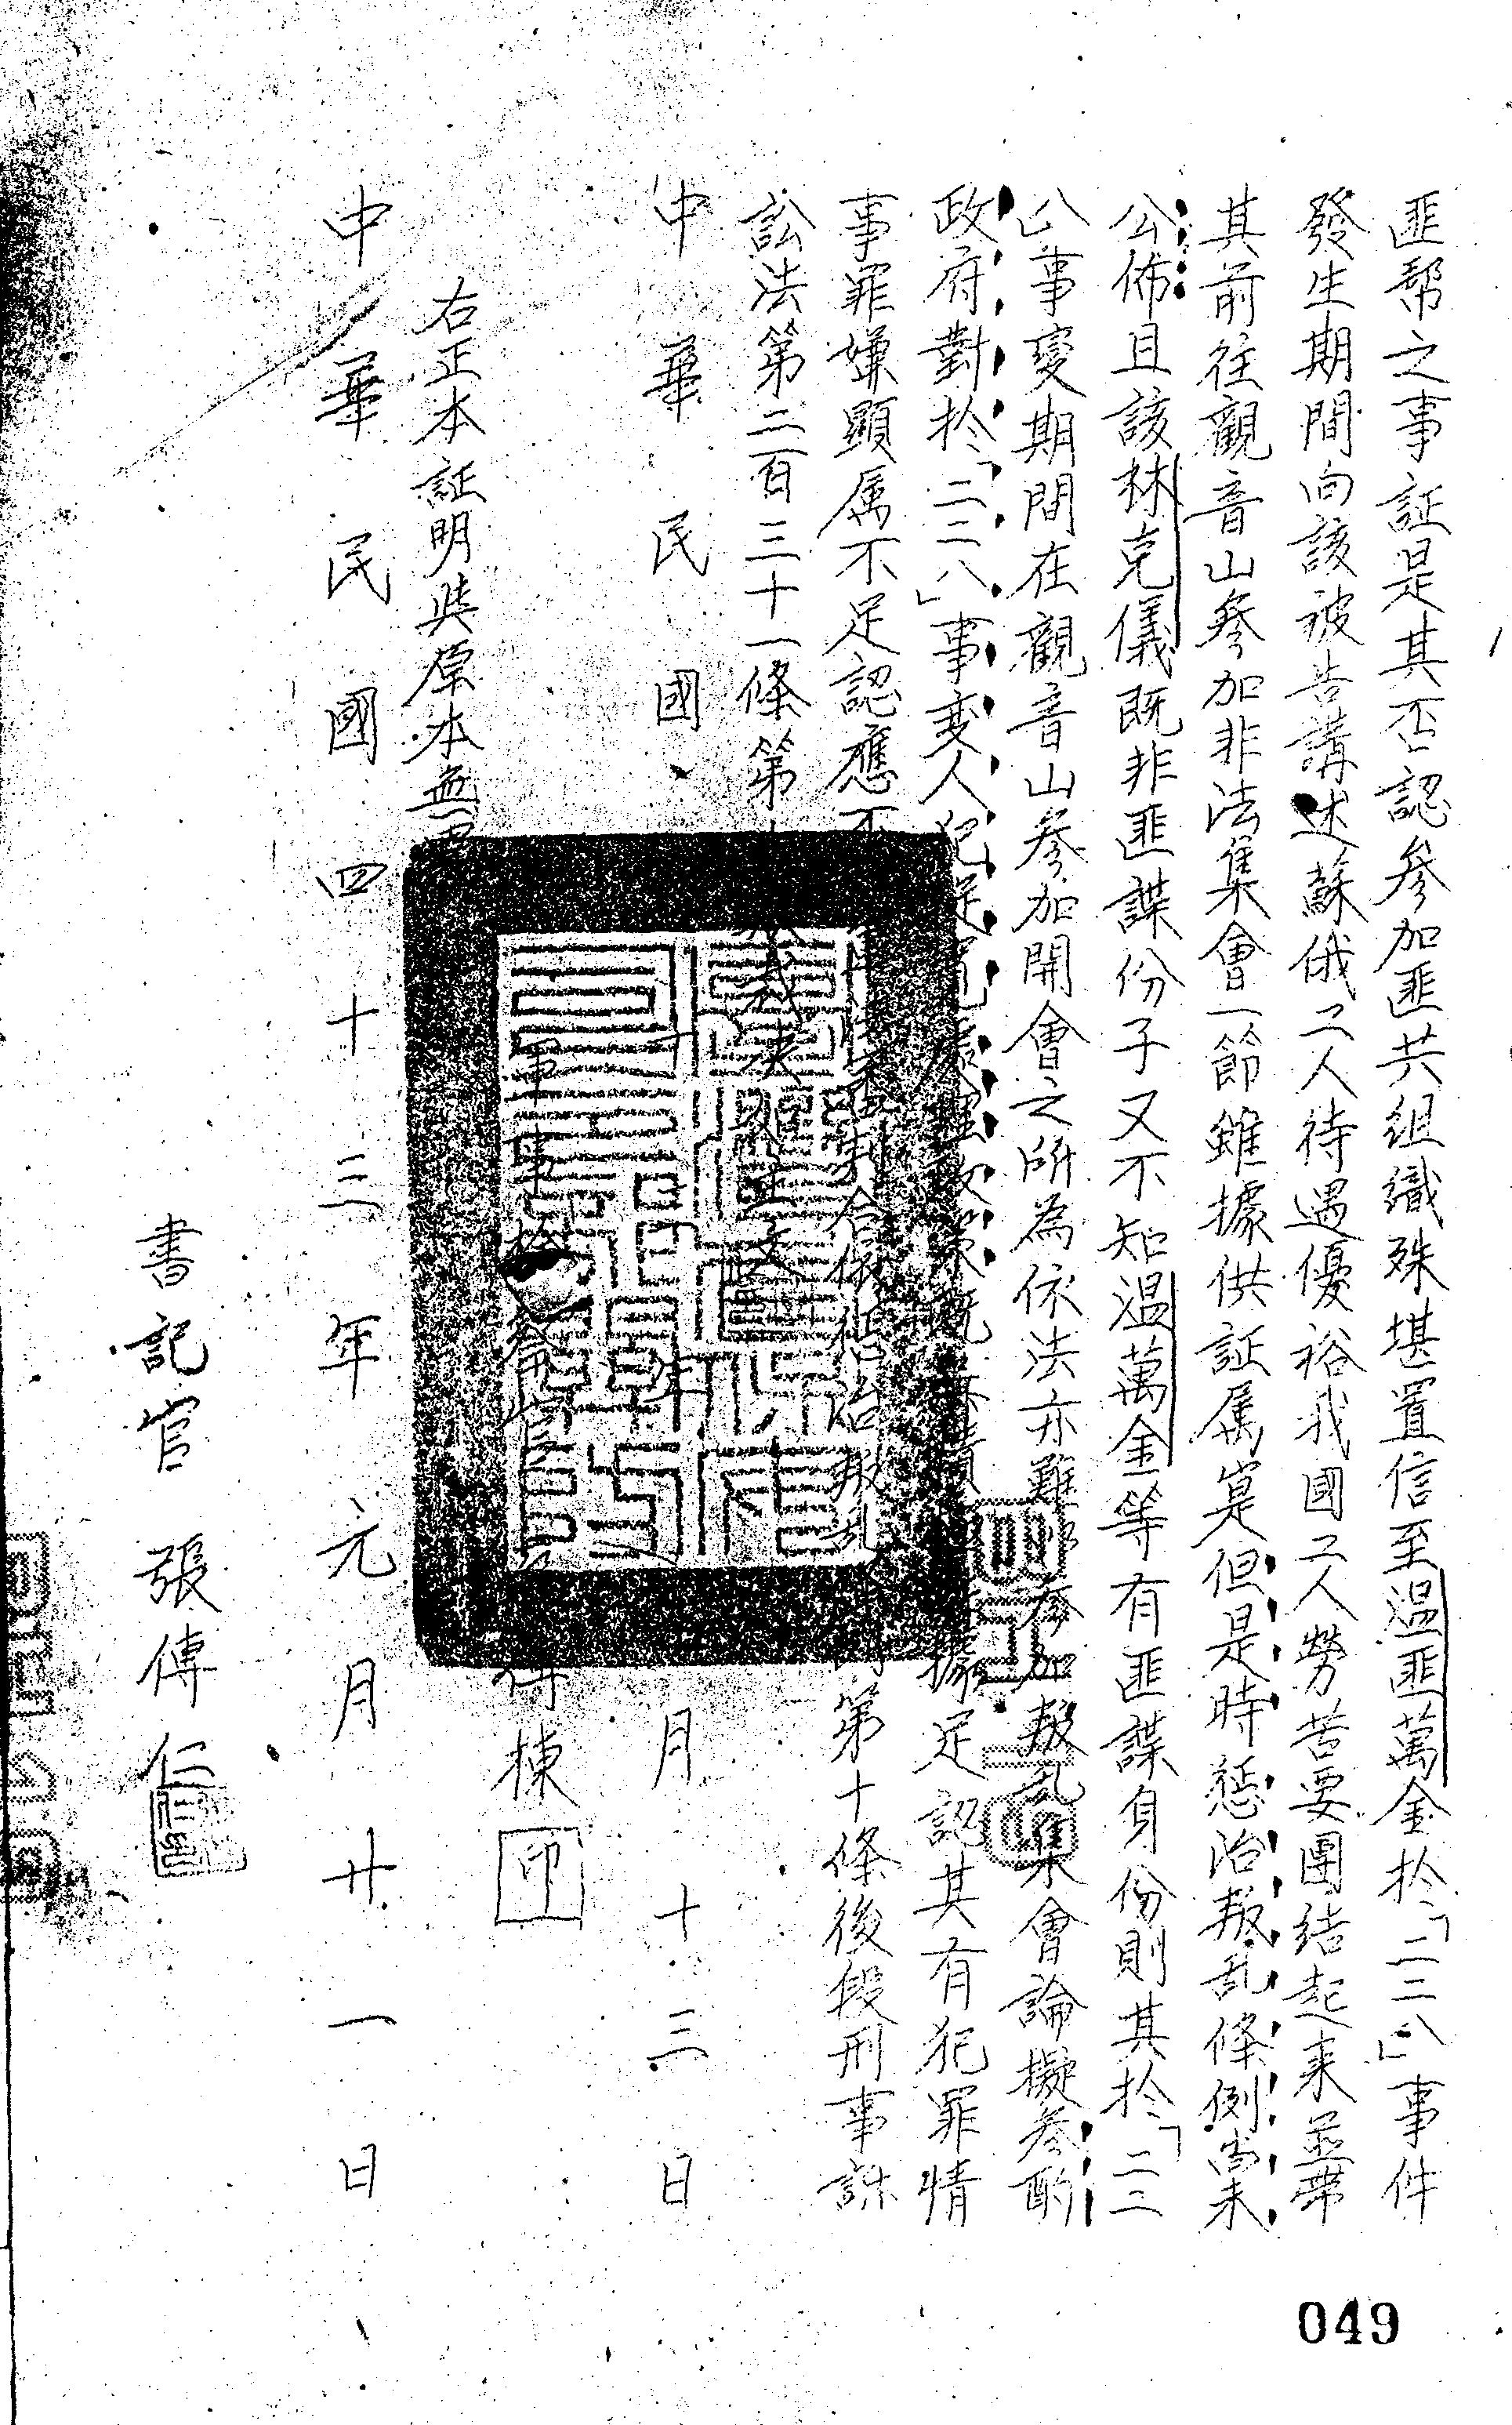 匪幫之事証是其否認參加匪共組織殊堪置信至温匪萬金於「二二八」事件
發生期間向該被告講述蘇俄工人待遇優裕我國工人勞苦要團結起來並帶
其前往觀音山參加非法集會一節雖據供証属寔但是時惩治叛乱條例尚未
公佈且該林克儀既非匪諜份子又不知温萬金等有匪諜身份則其於「二二
八」事变期間在觀音山參加開會之所為依法亦難 參加叛乱集會論擬參酌
政府對於「二二八」事变人犯 處理政策既 據足認其有犯罪情
事罪嫌顕属不足認應不 合依惩治叛乱 第十條後段刑事訴
訟法第二百三十一條第 裁 如主文
中華民國 年 月十三日
軍事檢察官 棟 印
右正本証明與原本無
中華民國四十三年元月廿一日
書記官 張傳仁
049